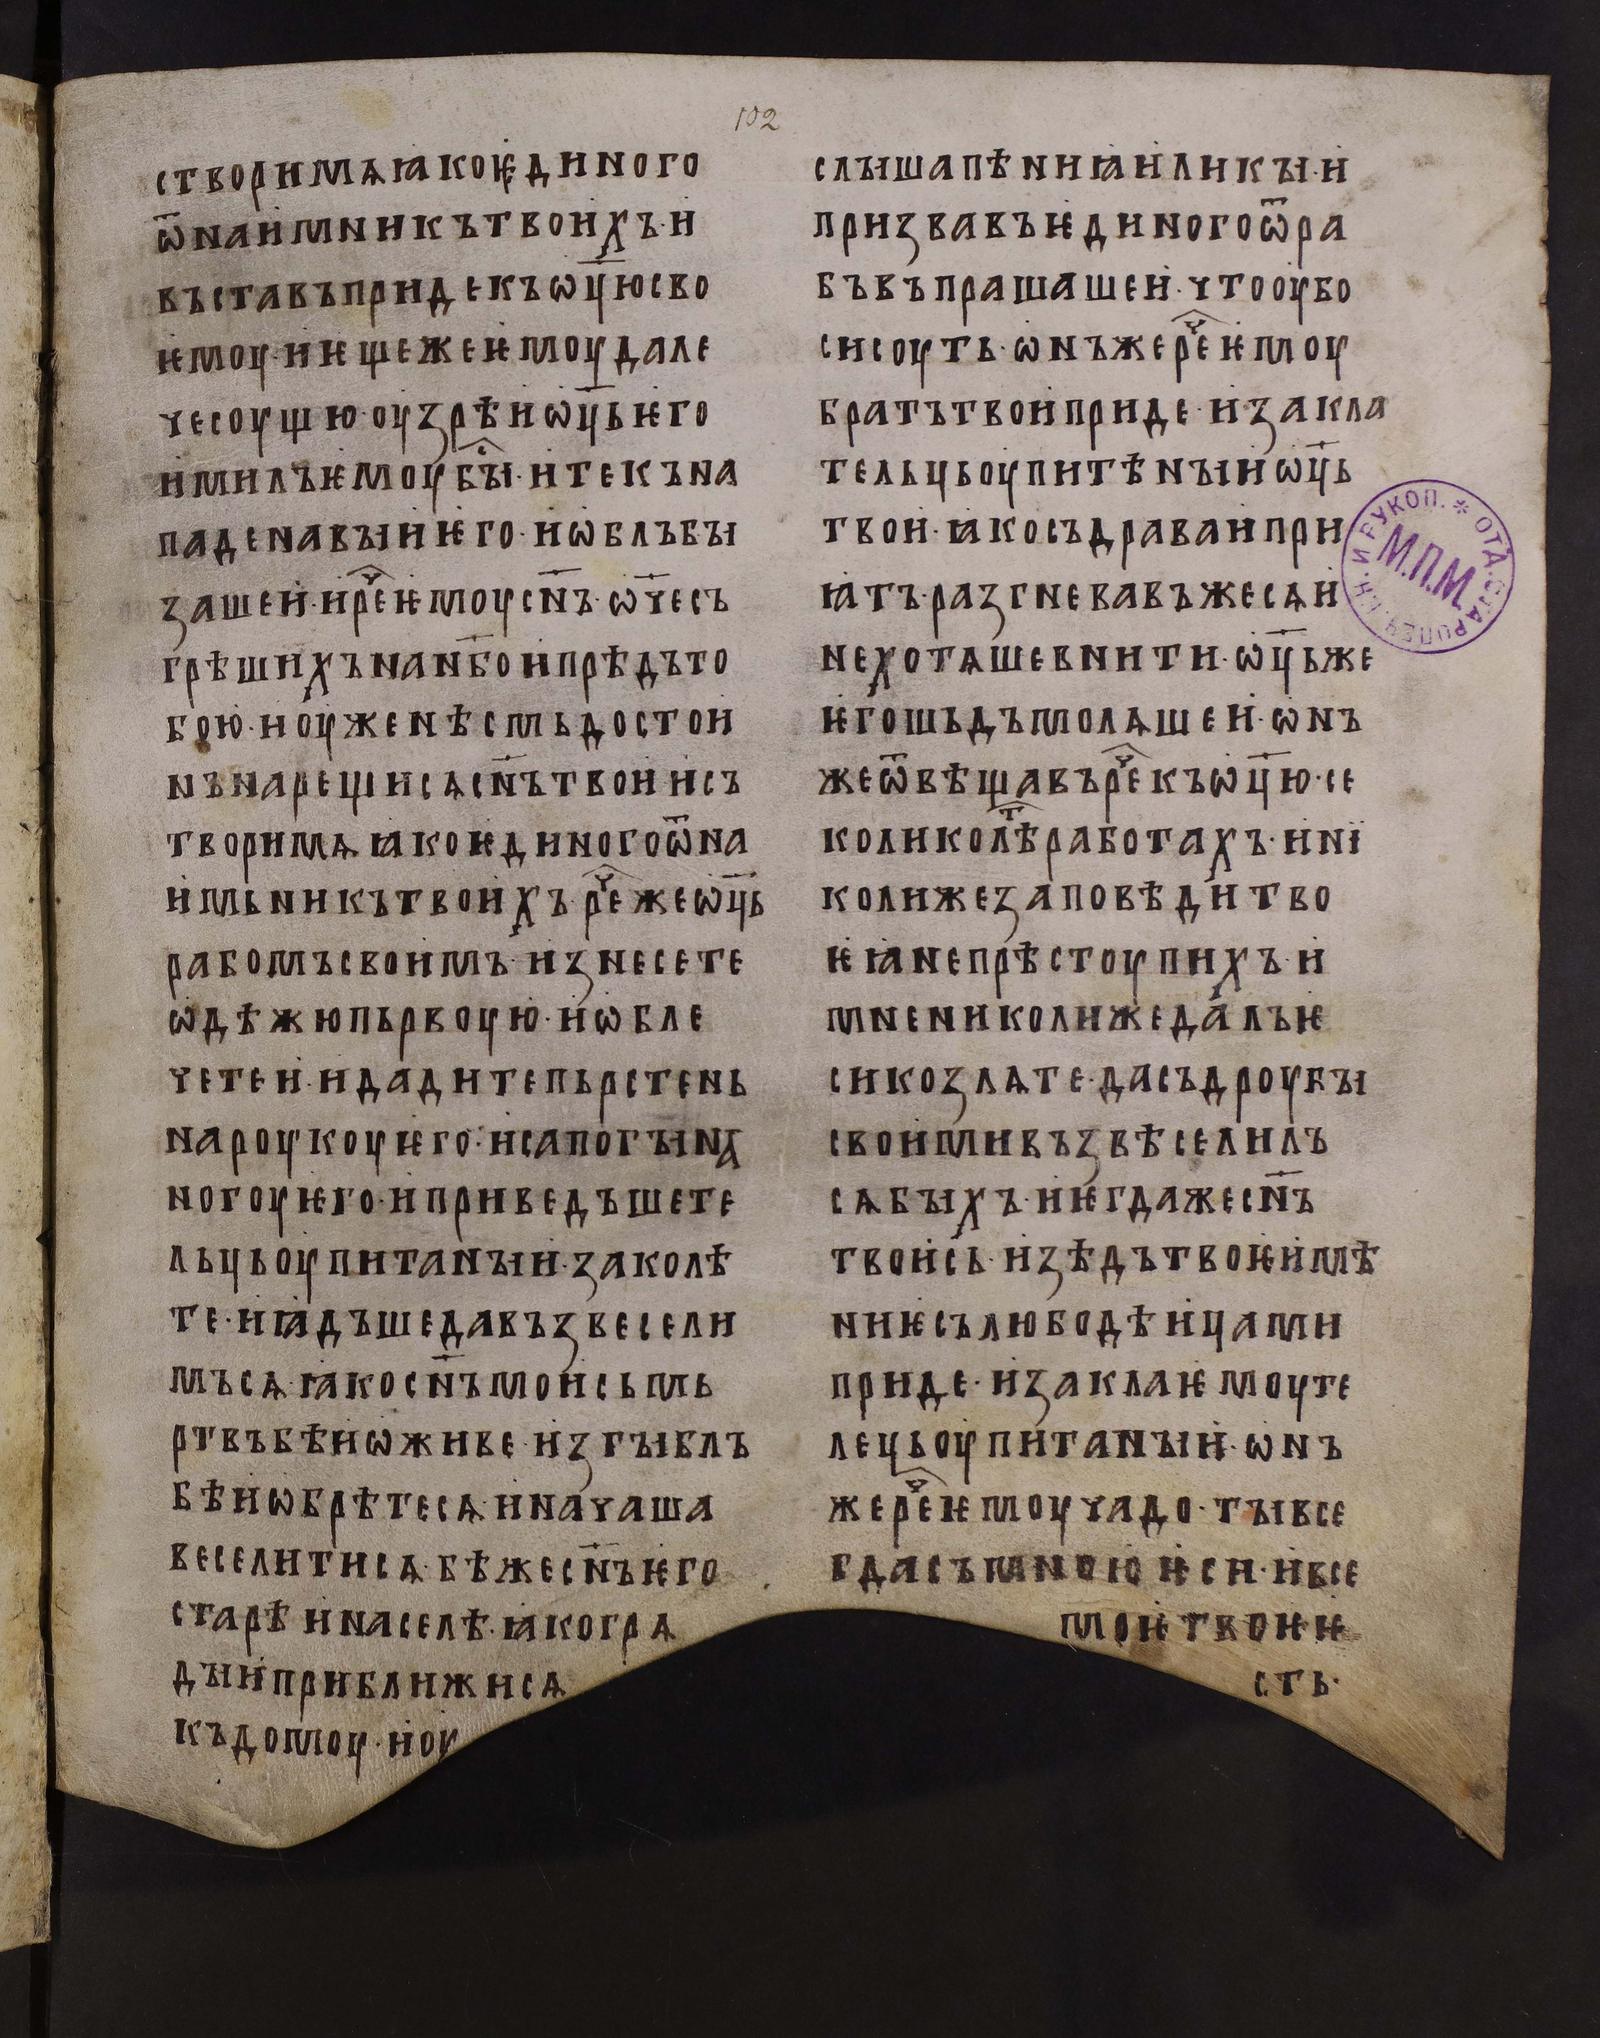 102
створи мѧ ꙗко ѥдиного
ѿ наимникъ твоихъ· и
въставъ приде къ ѡц҃ю сво
ѥмоу· и ѥще же ѥмоу дале
че соущю· оузрѣ и ѡц҃ь ѥго
и милъ ѥмоу бы҃· и текъ на
паде на выи ѥго· и ѡблъбы
заше и· и реⷱ҇ ѥмоу сн҃ъ· ѡч҃е съ
грѣшихъ на нб҃о и прѣдъ то
бою· и оуже нѣсмь достои
нъ нарещи сѧ сн҃ъ твои и съ
твори мѧ ꙗко ѥдиного ѿ на
имьникъ твоихъ реⷱ҇ же ѡц҃ь
рабомъ своимъ· изнесете
ѡдѣжю пьрвоую· и ѡбле
чете и· и дадите пьрстень
на роукоу ѥго· и сапогы на
ногоу ѥго· и приведъше те
льць оупитаныи· заколѣ
те· и ꙗдъше да възвесели
мъ сѧ· ꙗко сн҃ъ мои сь мь
ртвъ бѣ и ѡживе· изгыблъ
бѣ и ѡбрѣте сѧ· и начаша
веселити сѧ· бѣ же сн҃ъ ѥго
старѣи на селѣ· ꙗко грѧ
дыи приближи сѧ
къ домоу· и оу
слыша пѣниꙗ и ликы· и
призвавъ ѥдиного ѿ ра
бъ въпрашаше и· что оубо
си соуть· ѡнъ же реⷱ҇ ѥмоу
братъ твои приде· и закла
тельць оупитѣныи ѡц҃ь
твои· ꙗко съдрава и при
ꙗтъ· разгневавъ же сѧ и
не хотѧше внити· ѡц҃ь же
ѥго шьдъ молѧше и· ѡнъ
же ѿвѣщавъ реⷱ҇ къ ѡц҃ю· се
колико лѣⷮ работахъ· и нї
колиже заповѣди тво
ѥꙗ не прѣстоупихъ· и
мне николиже далъ ѥ
си козлѧте· да съ дроугы
своими възвѣселилъ
сѧ быхъ· и ѥгда же сн҃ъ
твои сь· изѣдъ твоѥ имѣ
ниѥ съ любодѣицами
приде· и закла ѥмоу те
лець оупитаныи· ѡнъ
же реⷱ҇ ѥмоу чадо· ты все
гда съ мною ѥси· и все
моѥ твоѥ ѥ
сть·
М.П.М.
ОТД. СТАРОПЕЧ. КН. И РУКОП.